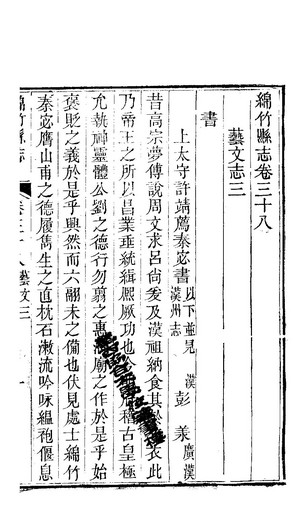 綿竹縣志卷三十八
藝文志三
書
上太守許靖薦秦宓書 以下並見漢州志 漢 彭羕 廣漢
昔高宗夢傳說周文求呂尚爰及漢祖納食其於 衣此
乃帝王之所以昌業垂統緝熙厥功也 稽古皇極
允執神靈體公劉之德行勿翦之惠 廟之作於是乎始
褒貶之義於是乎興然而六翮未之備也伏見處士綿竹
秦宓膺山甫之德履雋生之直枕石漱流吟咏縕袍偃息
綿竹縣志
卷三十八 藝文三
一